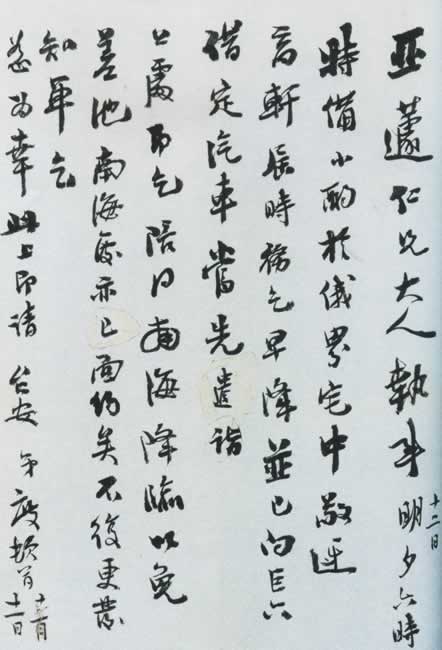 亞蘧仁兄大人執事明夕六時
十二日
特備小酌於俄界宅中敬迓
高軒屆時務乞早降並已向巨六
借定汽車當先遣詣
公處即乞陪同南海降臨以免
差池南海處亦已面約矣不復更發
知單乞
恕為幸此上即請台安弟毅頓首
十一日